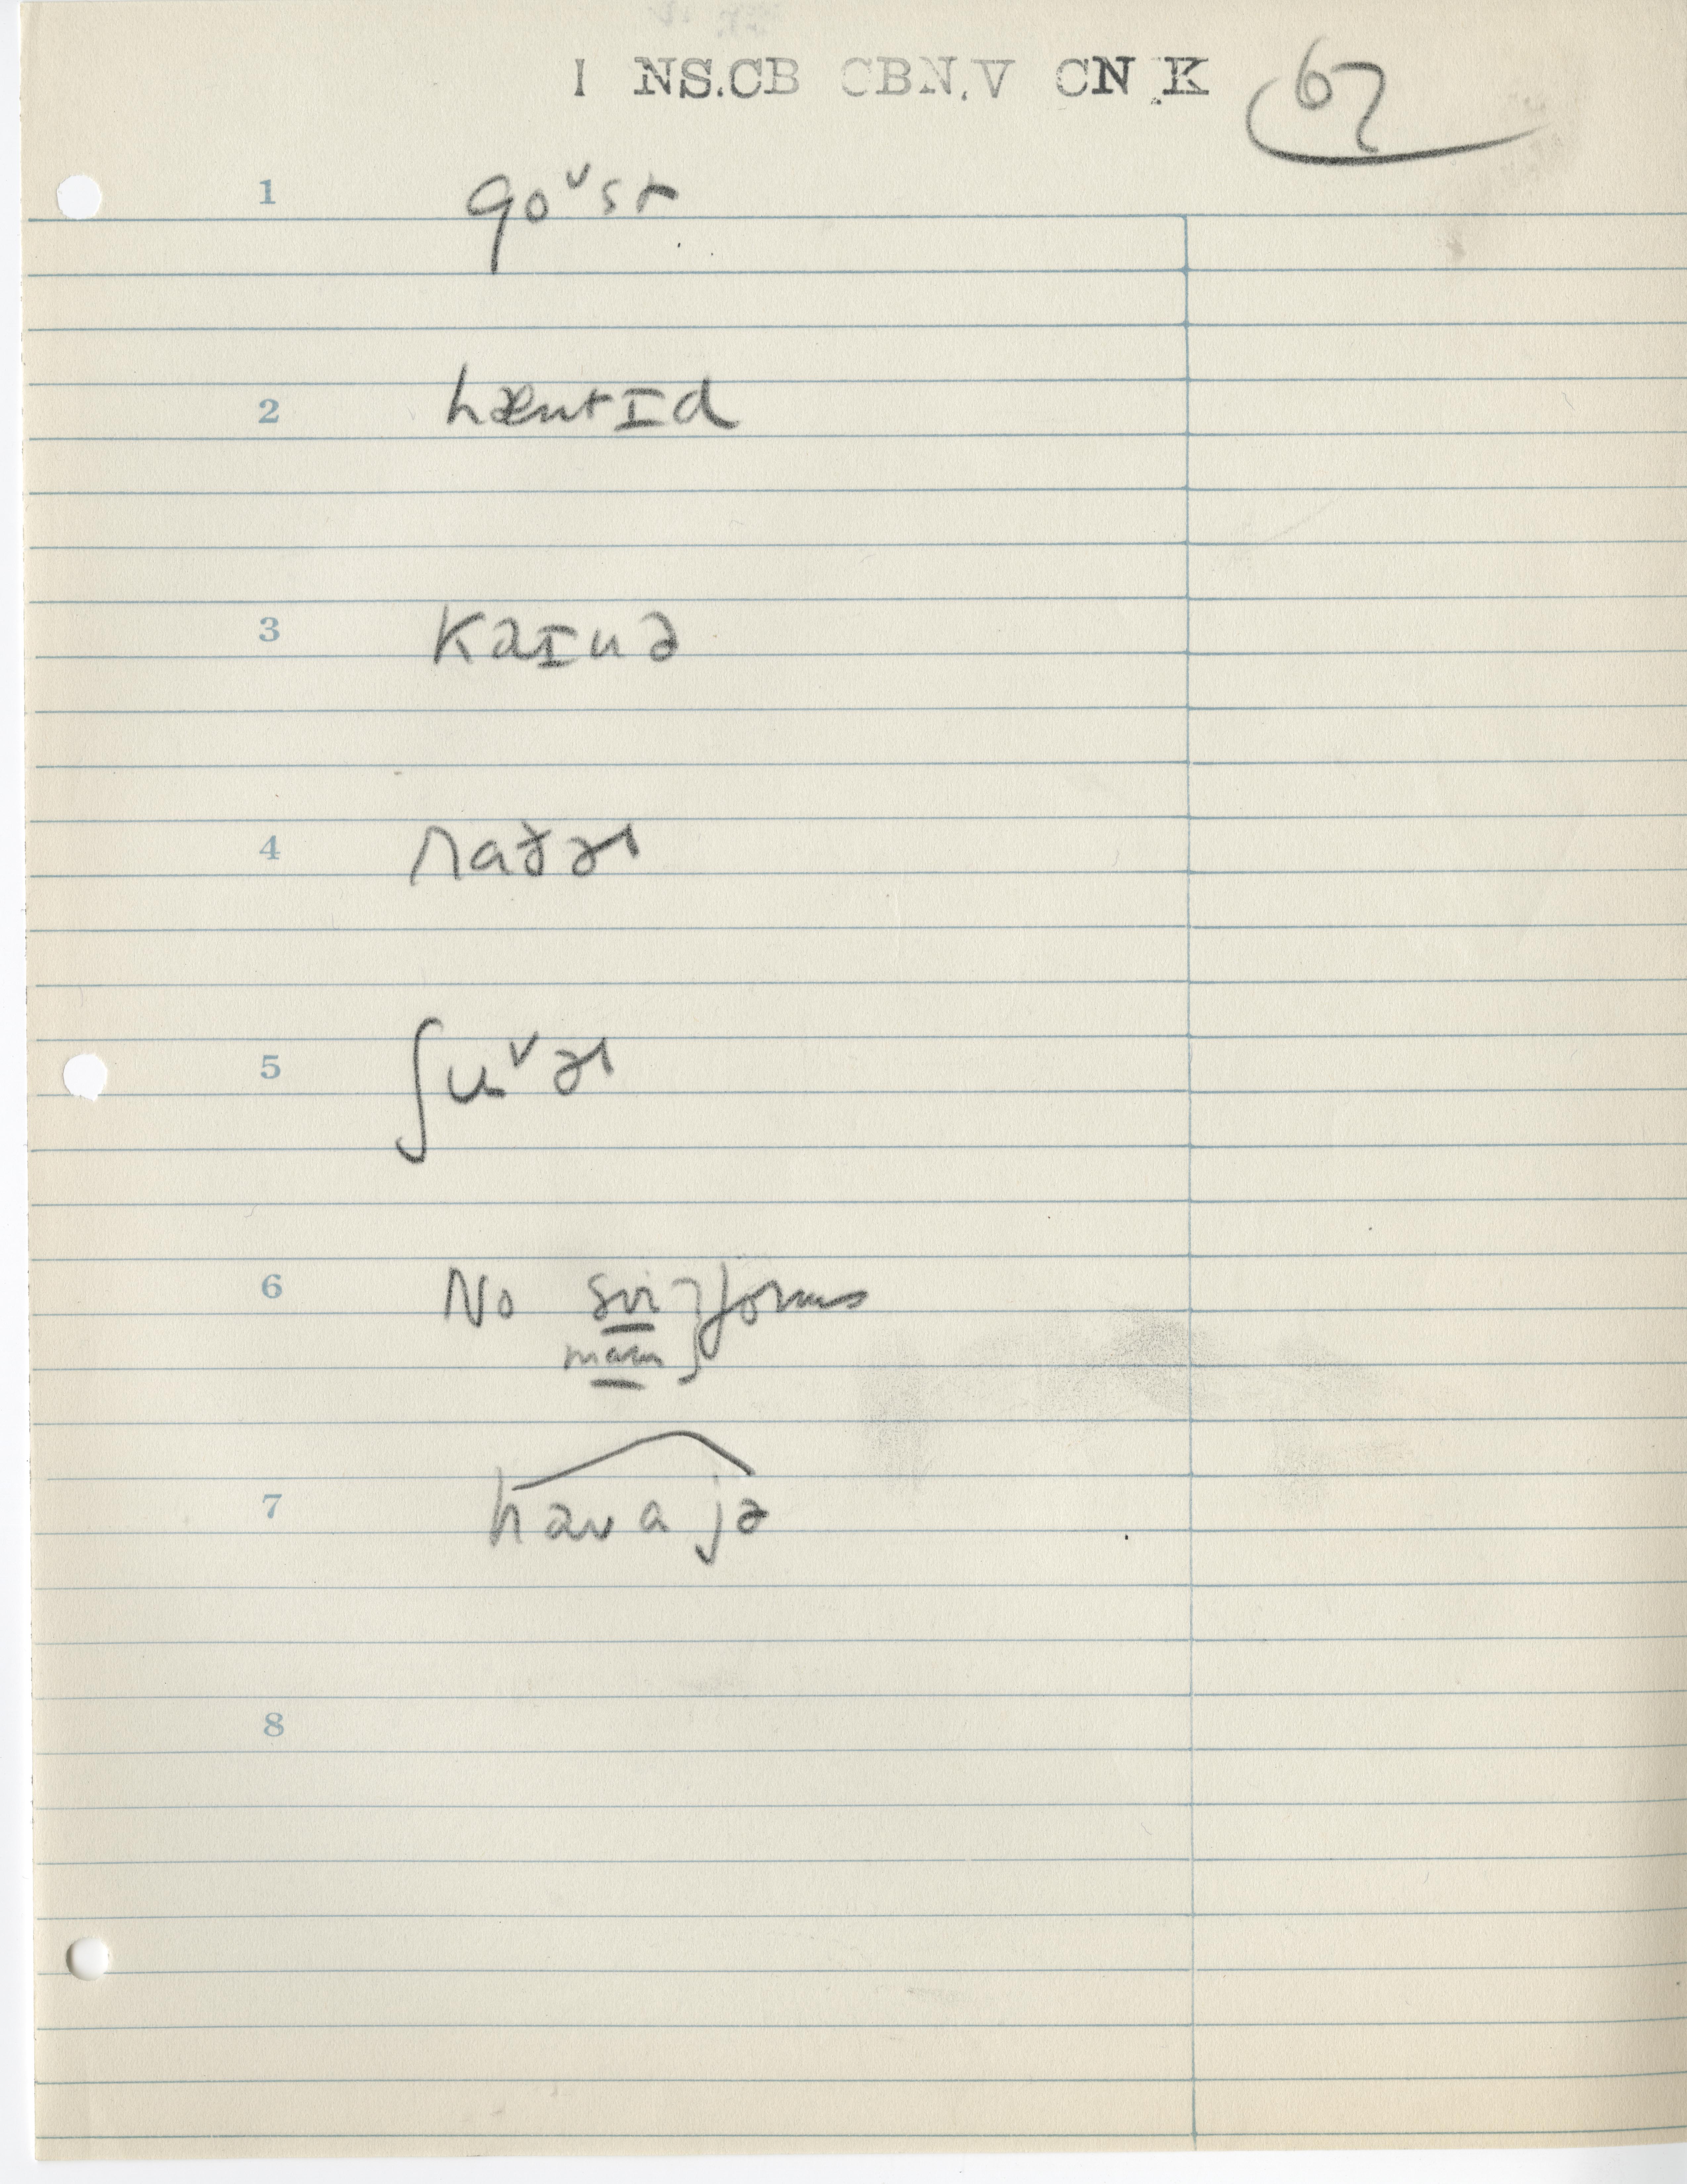 I NS.CB CBN.V CN.K 67
1 go^v st
2 hæntɪd
3 kaɪnə
4 raðɚ
5 ʃu^v ɚ
6 No sir } forms
mam
7 havajə
8